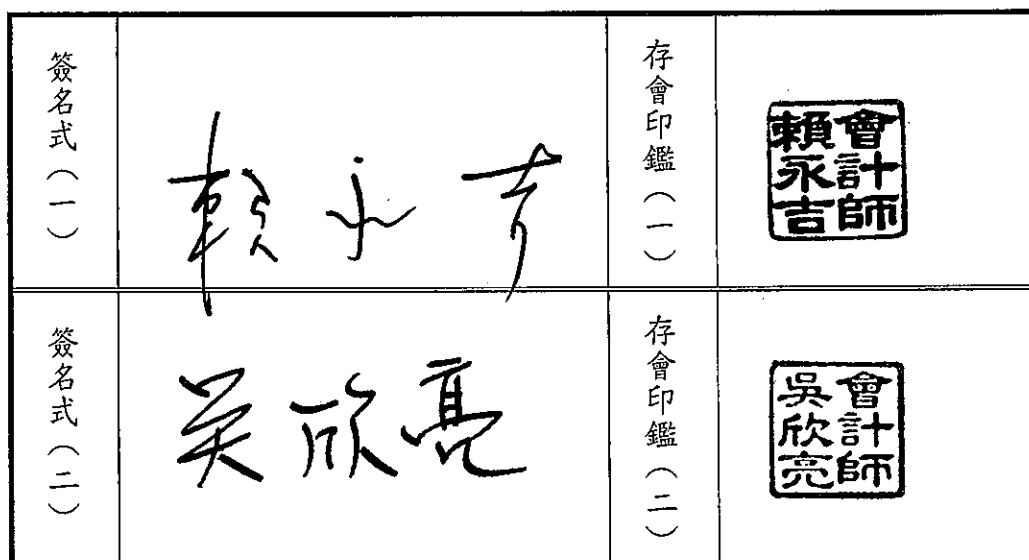 簽名式（一）
賴永吉
存會印鑑（一）
會計師
賴永吉
簽名式（二）
吳欣亮
存會印鑑（二）
會計師
吳欣亮